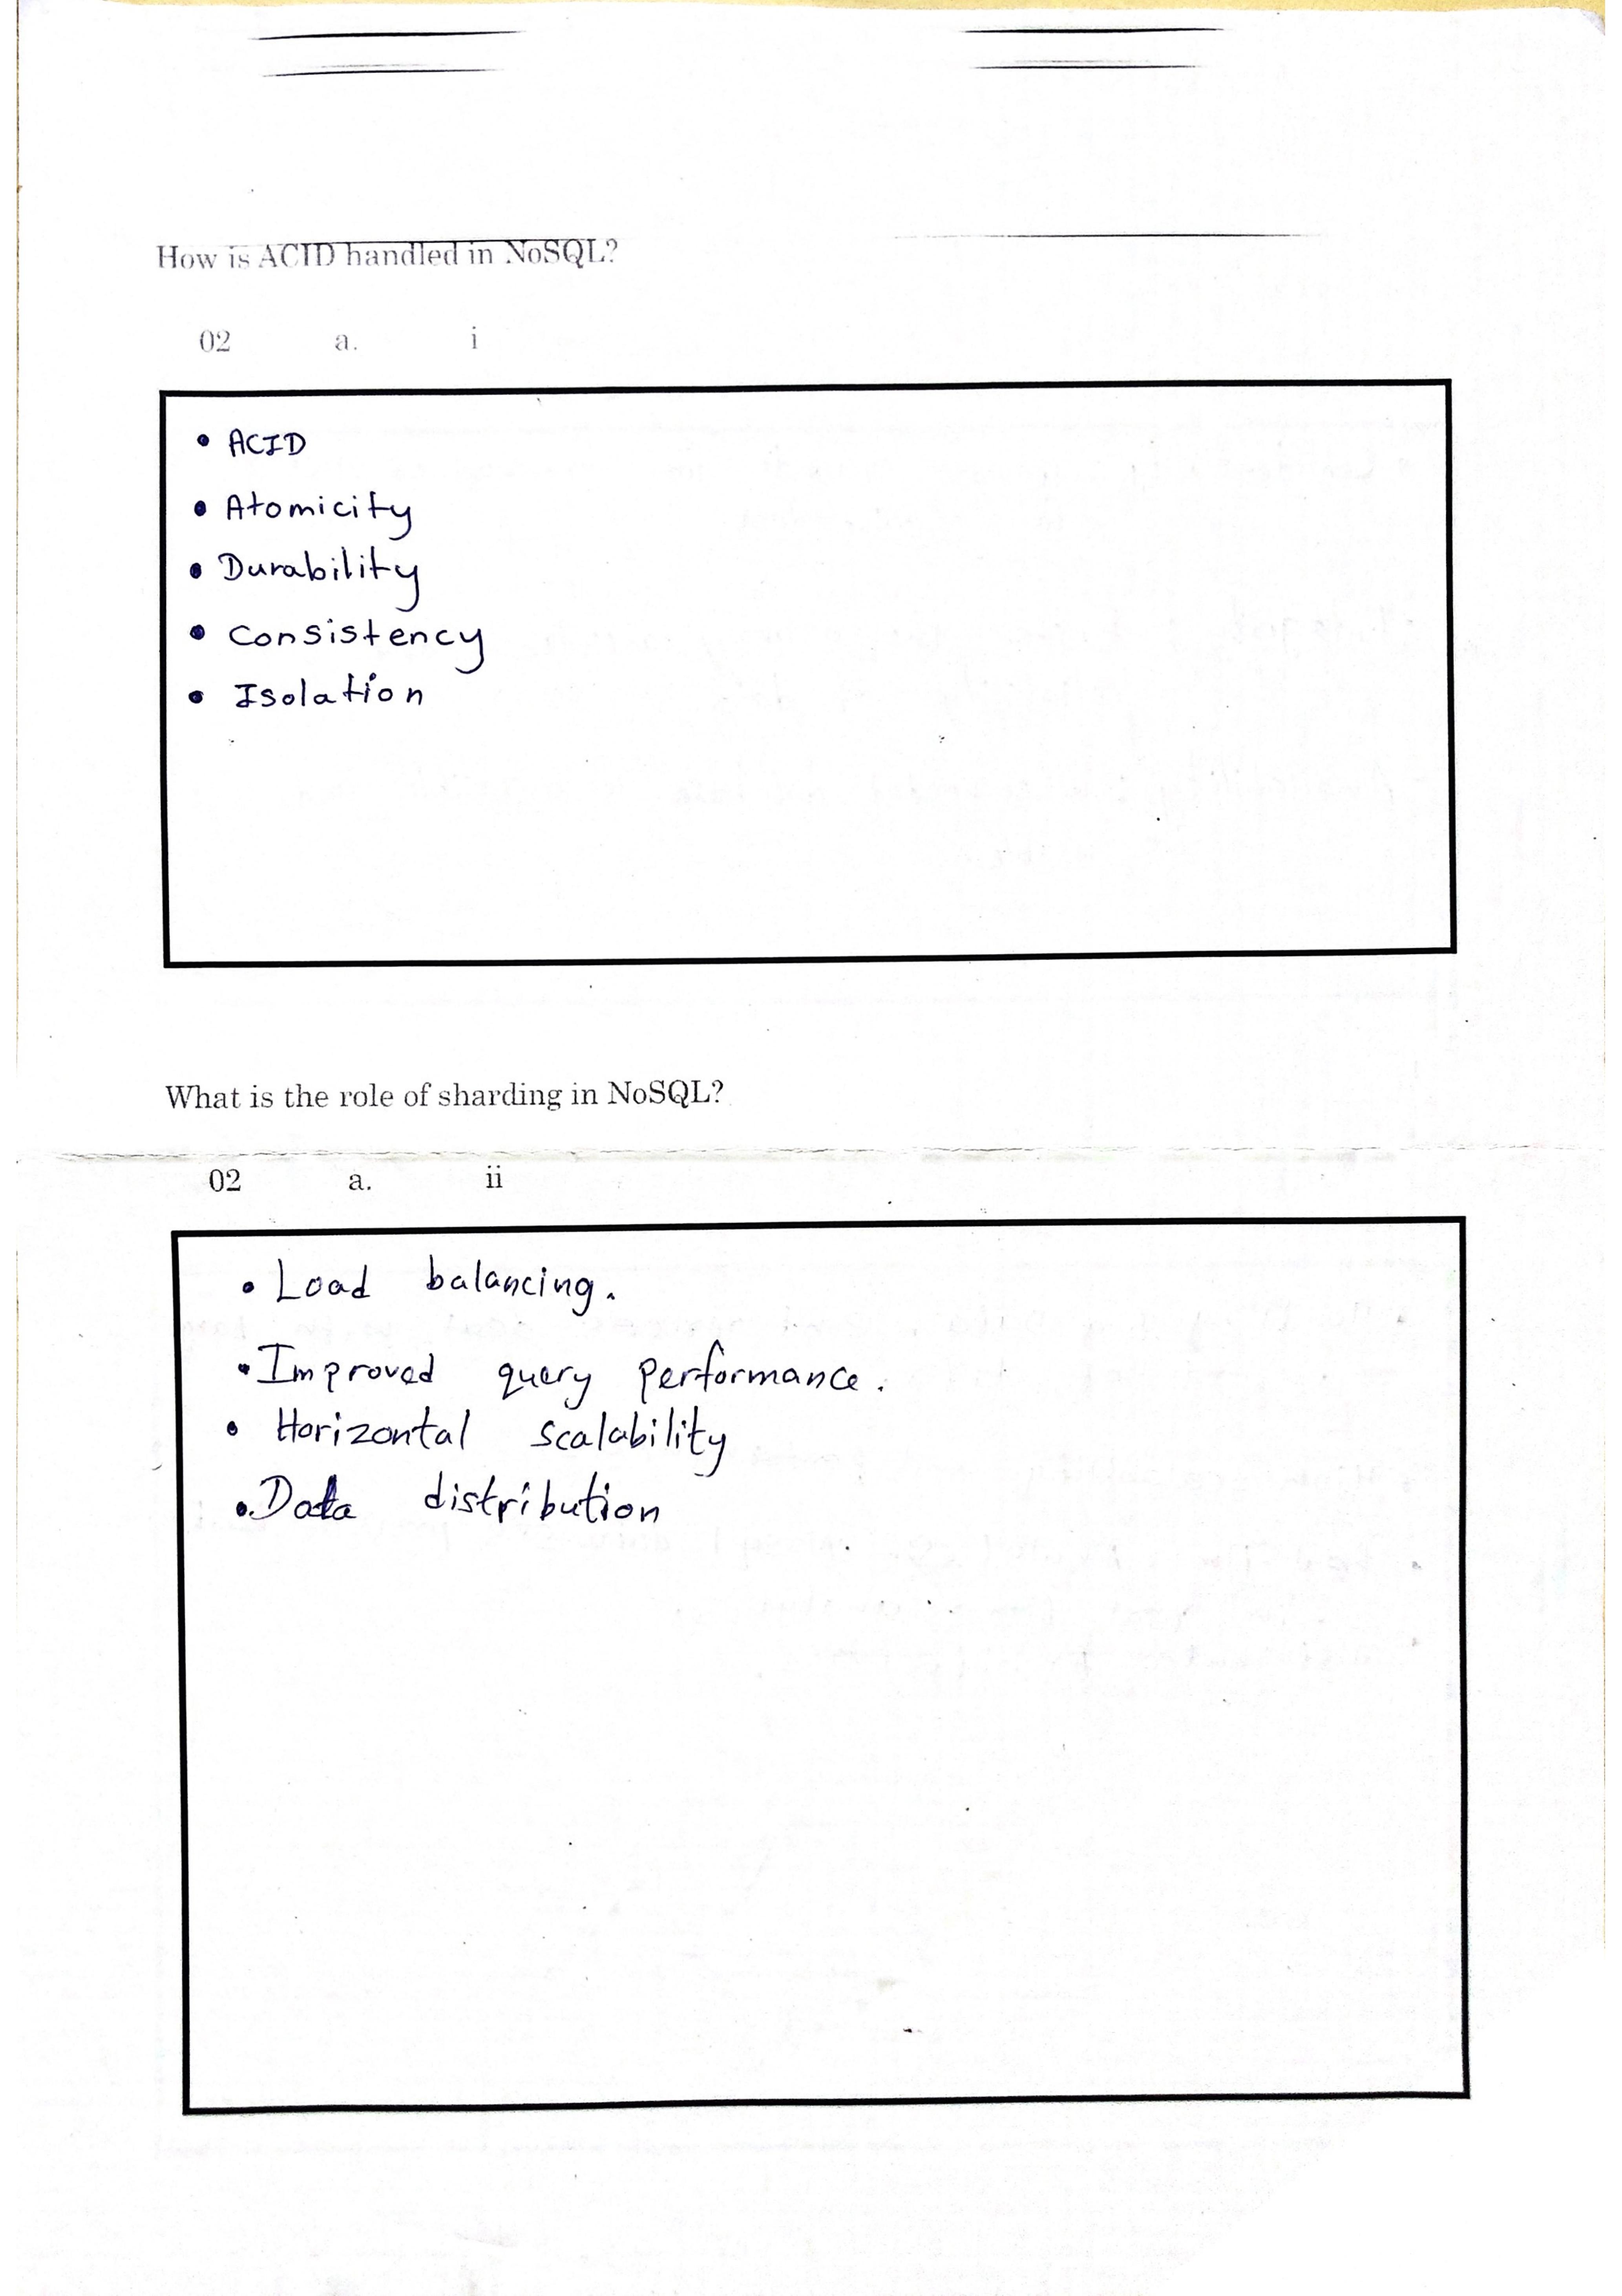 How is ACID handled in NoSQL?
02 a. i
• ACID
• Atomicity
• Durability
• Consistency
• Isolation
What is the role of sharding in NoSQL?
02 a. ii
• Load balancing.
• Improved query performance.
• Horizontal scalability
• Data distribution